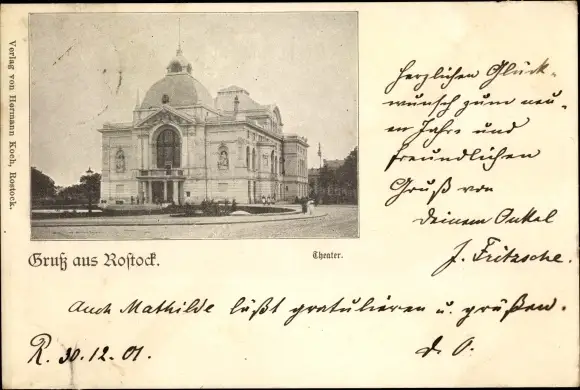 Verlag von Hermann Koch, Rostock.
Herzlichen Glück-
wunsch zum neu-
en Jahre und
freundlichen
Gruß von
deinem Onkel
J. Fritzsche.
Gruß aus Rostock.
Theater.
Auch Mathilde läßt gratulieren u. grüßen.
R. 30.12.01.
d. O.